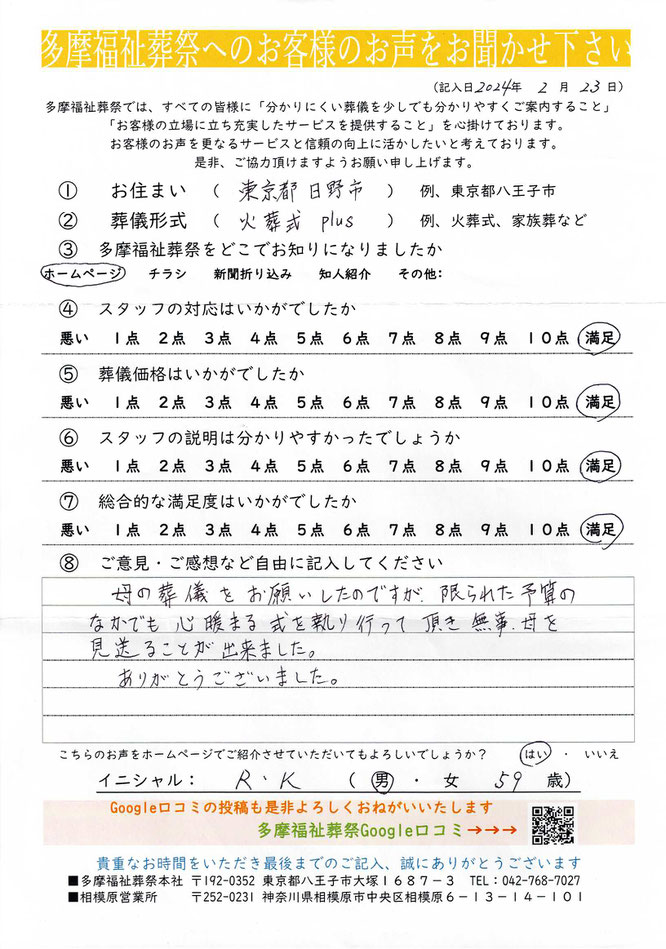 多摩福祉葬祭へのお客様のお声をお聞かせ下さい
（記入日2024年 2 月 23日）
多摩福祉葬祭では、すべての皆様に「分かりにくい葬儀を少しでも分かりやすくご案内すること」
「お客様の立場に立ち充実したサービスを提供すること」を心掛けております。
お客様のお声を更なるサービスと信頼の向上に活かしたいと考えております。
是非、ご協力頂けますようお願い申し上げます。
① お住まい （ 東京都 日野市 ） 例、東京都八王子市
② 葬儀形式 （ 火葬式 plus ） 例、火葬式、家族葬など
③ 多摩福祉葬祭をどこでお知りになりましたか
ホームページ チラシ 新聞折り込み 知人紹介 その他:
④ スタッフの対応はいかがでしたか
悪い 1点 2点 3点 4点 5点 6点 7点 8点 9点 10点 満足
⑤ 葬儀価格はいかがでしたか
悪い 1点 2点 3点 4点 5点 6点 7点 8点 9点 10点 満足
⑥ スタッフの説明は分かりやすかったでしょうか
悪い 1点 2点 3点 4点 5点 6点 7点 8点 9点 10点 満足
⑦ 総合的な満足度はいかがでしたか
悪い 1点 2点 3点 4点 5点 6点 7点 8点 9点 10点 満足
⑧ ご意見・ご感想など自由に記入してください
母の葬儀をお願いしたのですが、限られた予算の
なかでも 心暖まる 式を執り行って 頂き 無事、母を
見送ることが出来ました。
ありがとうございました。
こちらのお声をホームページでご紹介させていただいてもよろしいでしょうか？ はい ・ いいえ
イニシャル： R・K （ 男 ・ 女 59 歳）
Google口コミの投稿も是非よろしくおねがいいたします
多摩福祉葬祭Google口コミ→→→
貴重なお時間をいただき最後までのご記入、誠にありがとうございます
■多摩福祉葬祭本社 〒192-0352 東京都八王子市大塚１６８７－３ TEL：042-768-7027
■相模原営業所 〒252-0231 神奈川県相模原市中央区相模原６－１３－１４－１０１